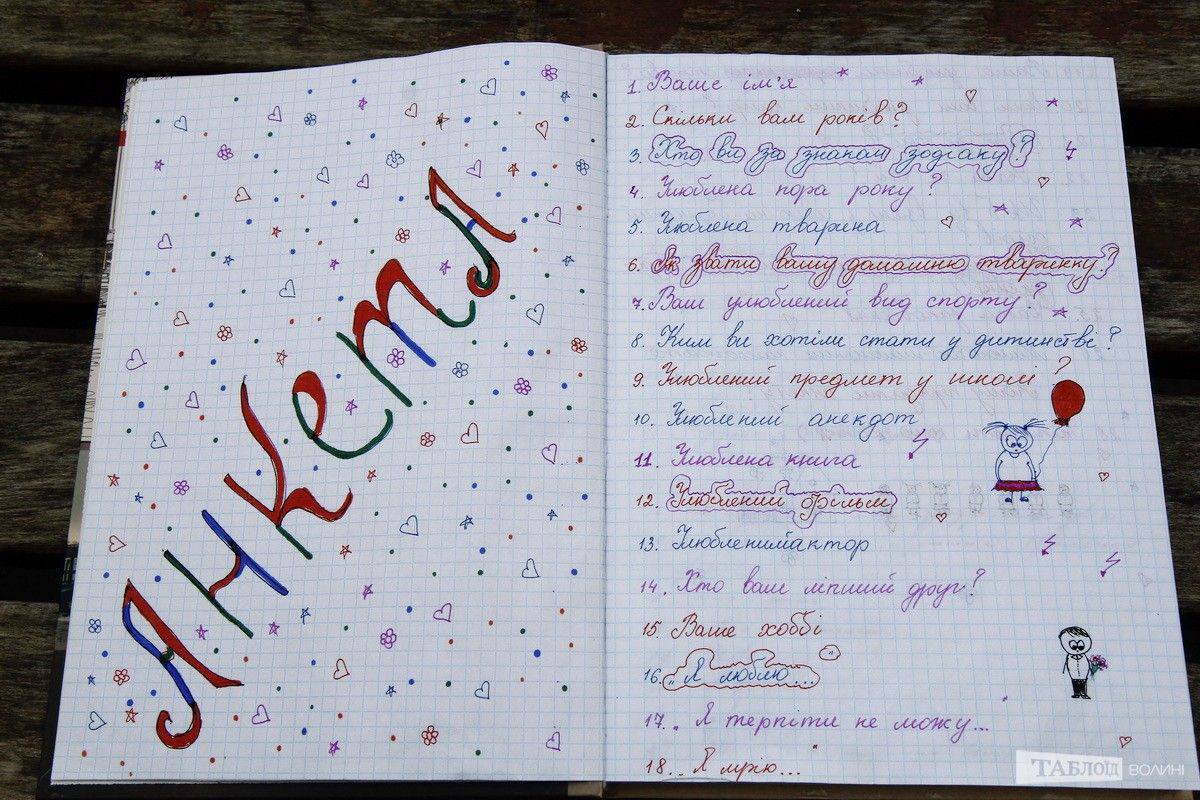 Анкета
1. Ваше ім'я
2. Скільки вам років?
3. Хто ви за знаком зодіаку?
4. Улюблена пора року?
5. Улюблена тварина
6. Як звати вашу домашню тваринку?
7. Ваш улюблений вид спорту?
8. Ким ви хотіли стати у дитинстві?
9. Улюблений предмет у школі?
10. Улюблений анекдот
11. Улюблена книга
12. Улюблений фільм
13. Улюблений актор
14. Хто ваш ліпший друг?
15. Ваше хоббі
16. „Я люблю..."
17. „Я терпіти не можу...
18. „Я мрію...
ТАБЛОЇД ВОЛИНІ